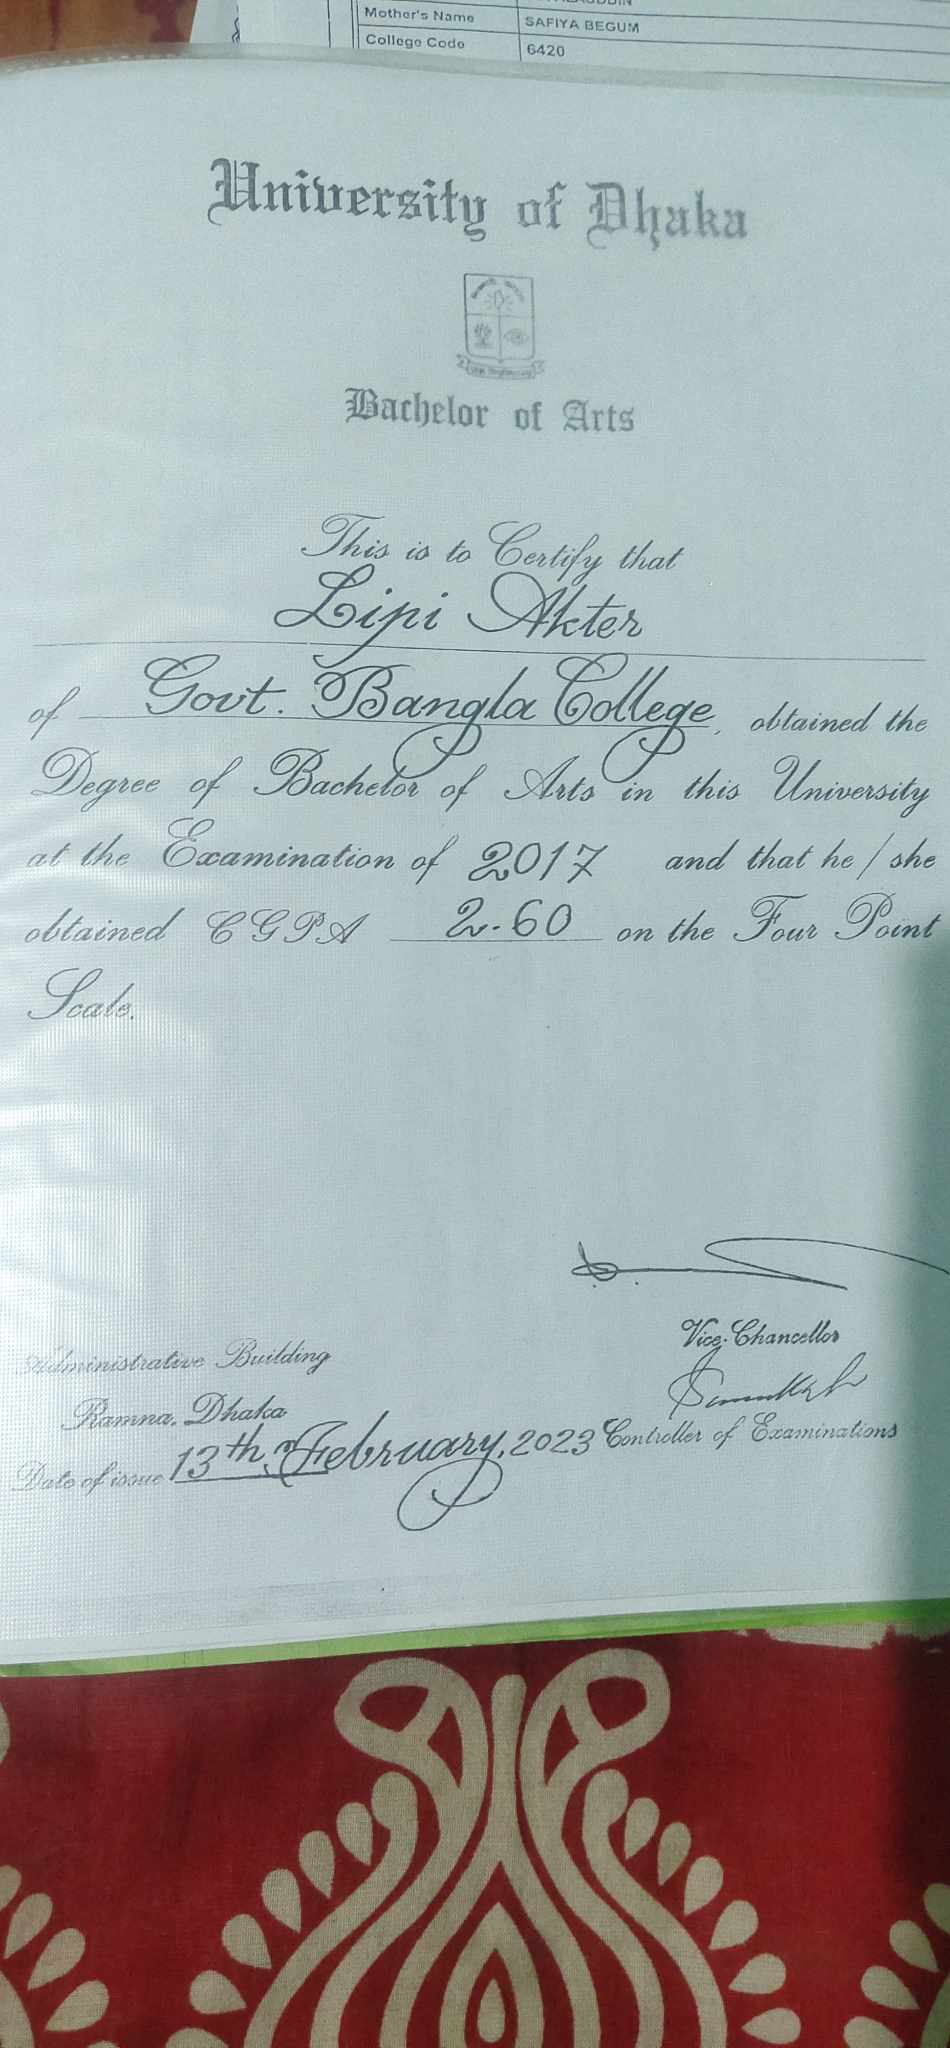 Mother's Name SAFIYA BEGUM
College Code 6420
University of Dhaka
Bachelor of Arts
This is to Certify that
Lipi Akter
of Govt. Bangla College, obtained the
Degree of Bachelor of Arts in this University
at the Examination of 2017 and that he / she
obtained CGPA 2.60 on the Four Point
Scale.
Vice-Chancellor
Administrative Building
Ramna, Dhaka
Controller of Examinations
Date of issue 13th, February, 2023